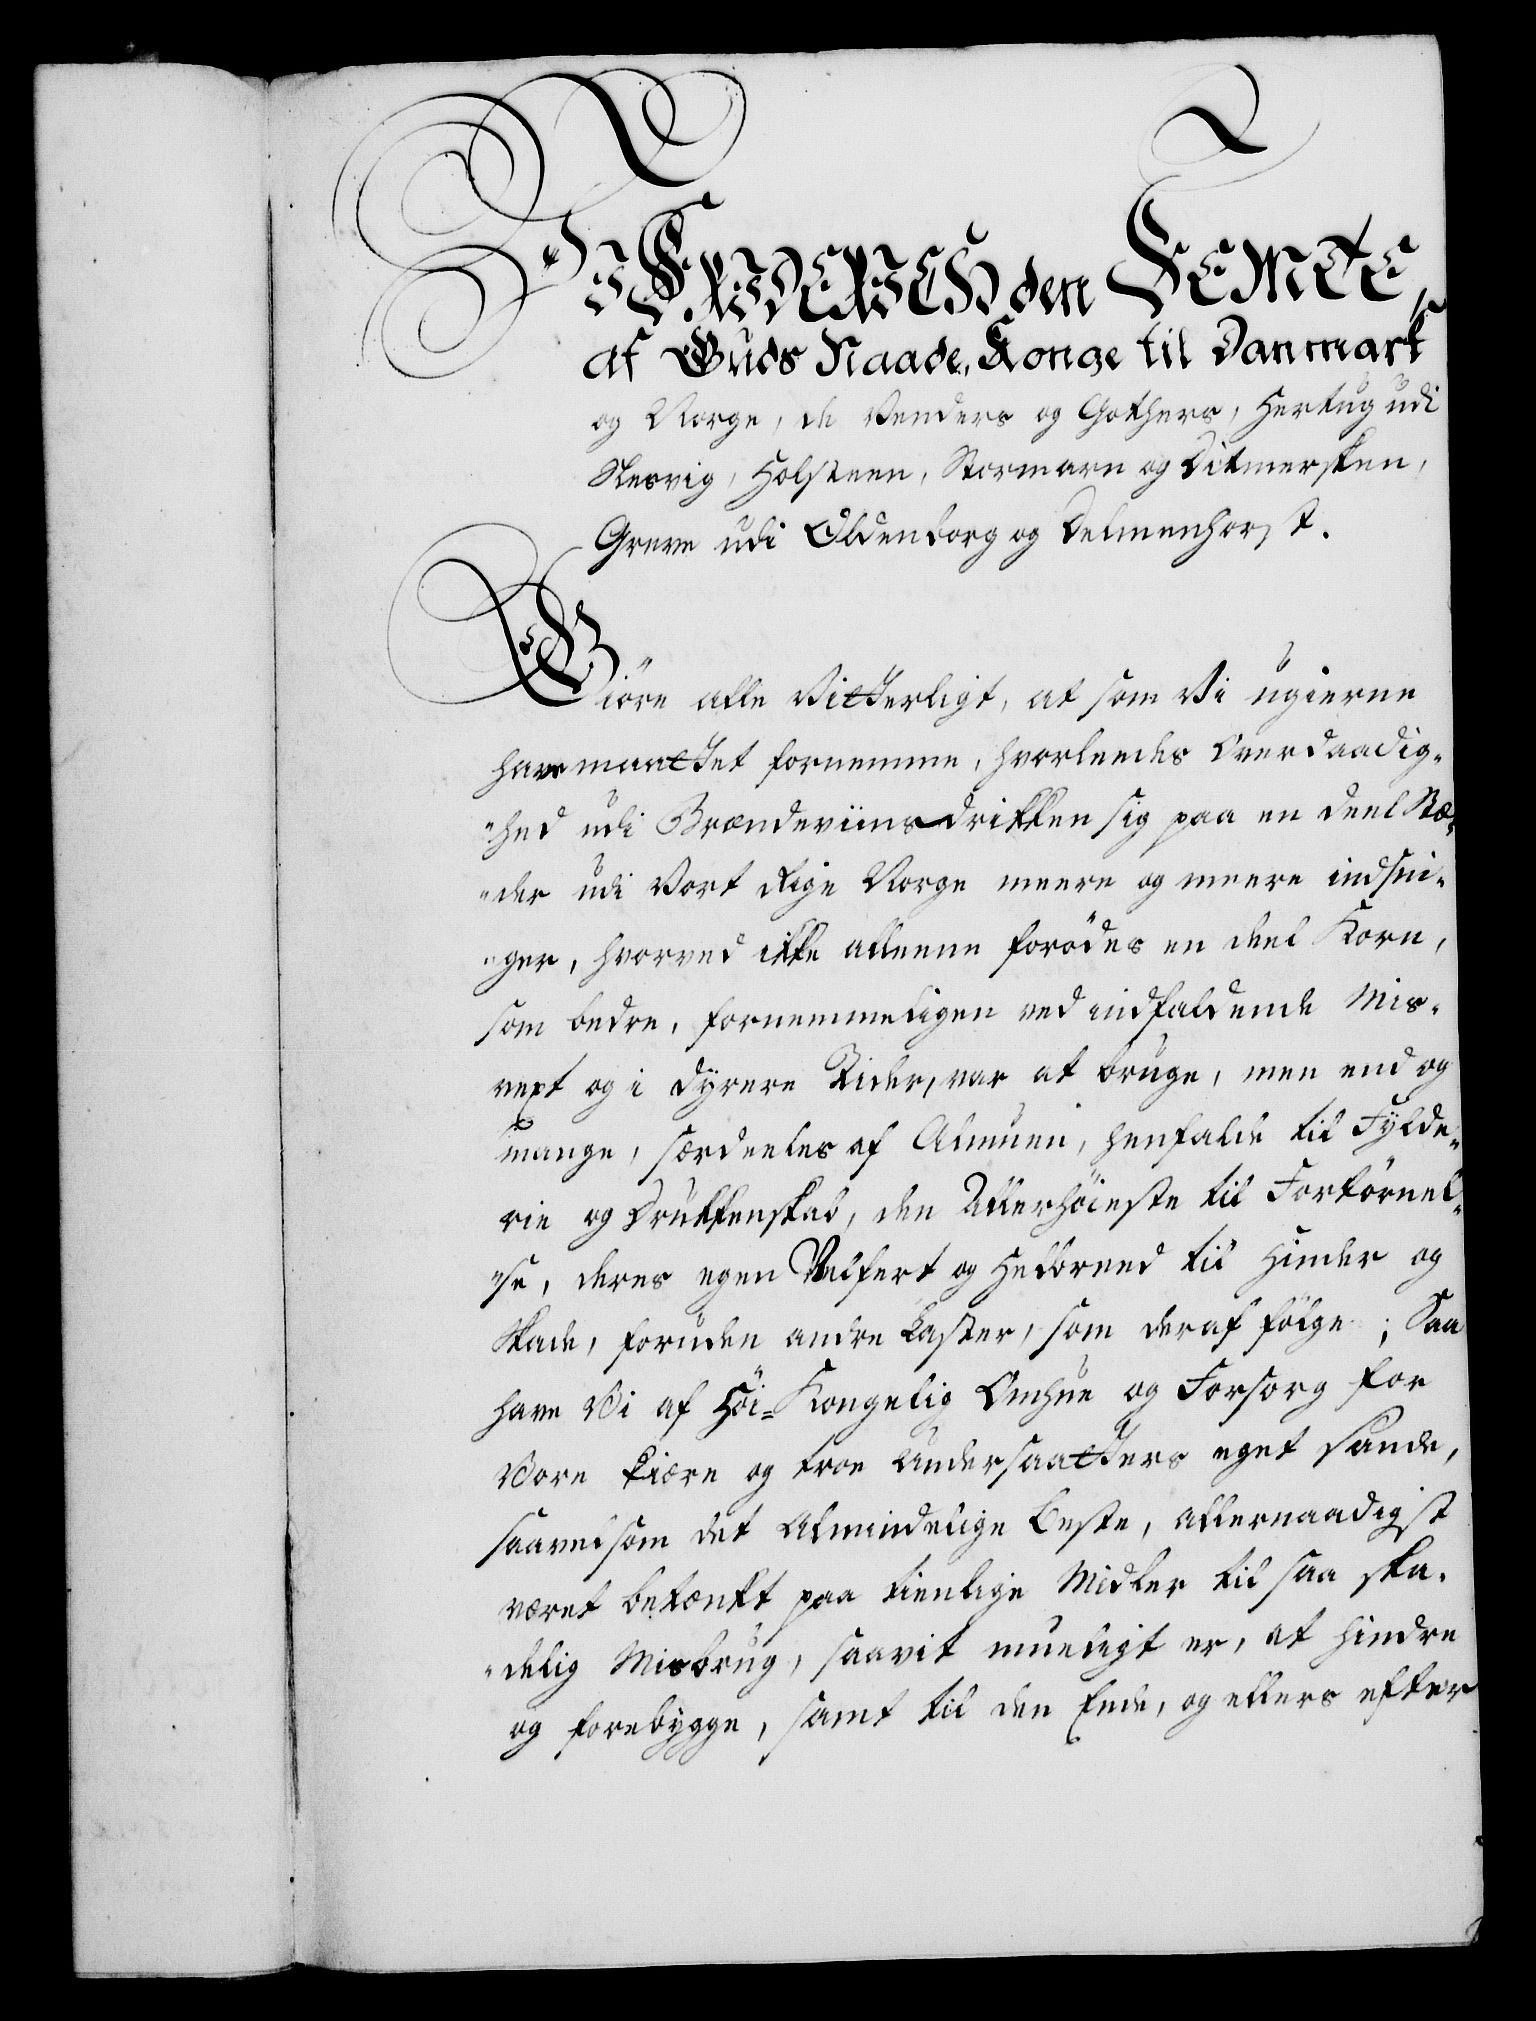 Vi FRIDERICH den FEMTE,
af Guds Naade, Konge til Danmark
og Norge, de Venders og Gothers, Hertug udi
Slesvig, Holsteen, Stormarn og Ditmersken,
Greve udi Oldenborg og Delmenhorst.
Giöre alle Vitterligt, at som Vi ugierne
have maattet fornemme, hvorleedes Overdaadig-
"hed udi Brændeviins drikken sig paa en deel Stæ-
"der udi Vort Rige Norge meere og meere indsni-
"ger, hvorved ikke alleene forödes en deel Korn,
som bedre, fornemmeligen ved indfaldende Mis-
vext og i dyrere Tider, var at bruge, men end og
mange, særdeeles af Almuen, henfalde til Fylde-
rie og Drukkenskab, den Allerhöieste til Fortörnel-
"se, deres egen Velfert og Helbrned til Hinder og
Skade, foruden andre Laster, som deraf fölge; Saa
have Vi af Höi- Kongelig Omhue og Forsorg for
Vore kiære og troe Undersaatters eget sande,
saavelsom det Almindelige Beste, allernaadigst
været betænkt paa tienlige Midler til saa ska-
"delig Misbrug, saavit mueligt er, at hindre
og forebygge, samt til den Ende, og ellers efter